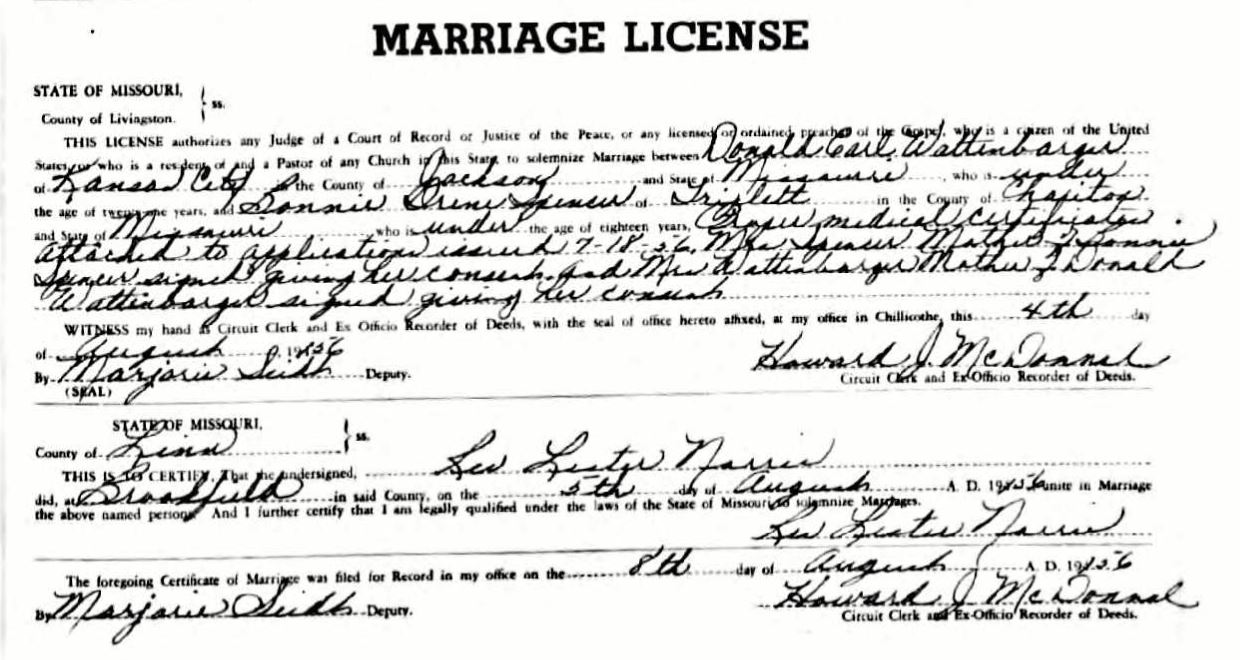 MARRIAGE LICENSE
STATE OF MISSOURI,
ss.
County of Livingston.
THIS LICENSE authorizes any Judge of a Court of Record or Justice of the Peace, or any licensed or ordained preacher of the Gospel, who is a citizen of the United
States, or who is a resident of and a Pastor of any Church in this State, to solemnize Marriage between Donald Earl Wattenbarger
of Kansas City in the County of Jackson and State of Missouri, who is under
the age of twenty-one years, and Bonnie Irene Spencer of Triplett in the County of Chariton
and State of Missouri, who is under the age of eighteen years, Proper medical certificates
attached to application issued 7-18-56. Mrs Spencer Mother of Bonnie
Spencer signed giving her consent and Mrs Wattenbarger Mother of Donald
Wattenbarger signed giving her consent
WITNESS my hand as Circuit Clerk and Ex Officio Recorder of Deeds, with the seal of office hereto affixed, at my office in Chillicothe, this 4th day
of August, 1956
Howard J. McDonnal
By Marjorie Deputy.
Circuit Clerk and Ex-Officio Recorder of Deeds.
(SEAL)
STATE OF MISSOURI,
ss.
County of Linn
THIS IS TO CERTIFY, That the undersigned, Rev Lester Norris
did, at Brookfield in said County, on the 5th day of August A. D. 1956 unite in Marriage
the above named persons. And I further certify that I am legally qualified under the laws of the State of Missouri to solemnize Marriages.
Rev Lester Norris
The foregoing Certificate of Marriage was filed for Record in my office on the 8th day of August A. D. 1956
By Marjorie Deputy.
Howard J McDonnal
Circuit Clerk and Ex-Officio Recorder of Deeds.